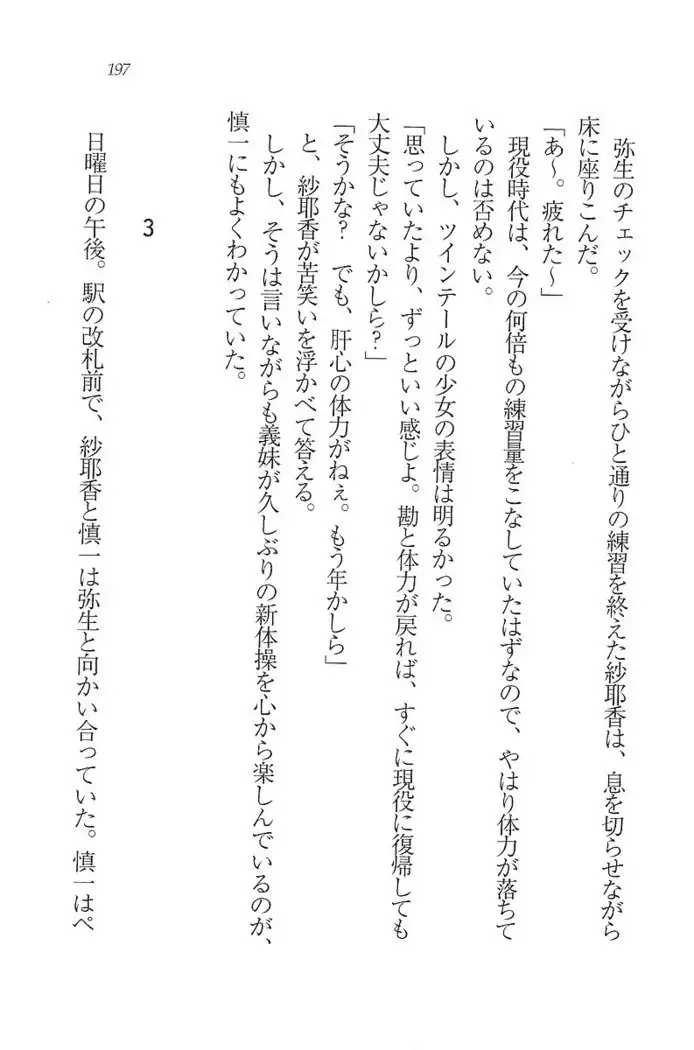 197
弥生のチェックを受けながらひと通りの練習を終えた紗耶香は、息を切らせながら
床に座りこんだ。
「あ〜。疲れた〜」
現役時代は、今の何倍もの練習量をこなしていたはずなので、やはり体力が落ちて
いるのは否めない。
しかし、ツインテールの少女の表情は明るかった。
「思っていたより、ずっといい感じよ。勘と体力が戻れば、すぐに現役に復帰しても
大丈夫じゃないかしら？」
「そうかな？　でも、肝心の体力がねぇ。もう年かしら」
と、紗耶香が苦笑いを浮かべて答える。
しかし、そうは言いながらも義妹が久しぶりの新体操を心から楽しんでいるのが、
慎一にもよくわかっていた。
3
日曜日の午後。駅の改札前で、紗耶香と慎一は弥生と向かい合っていた。慎一はペ